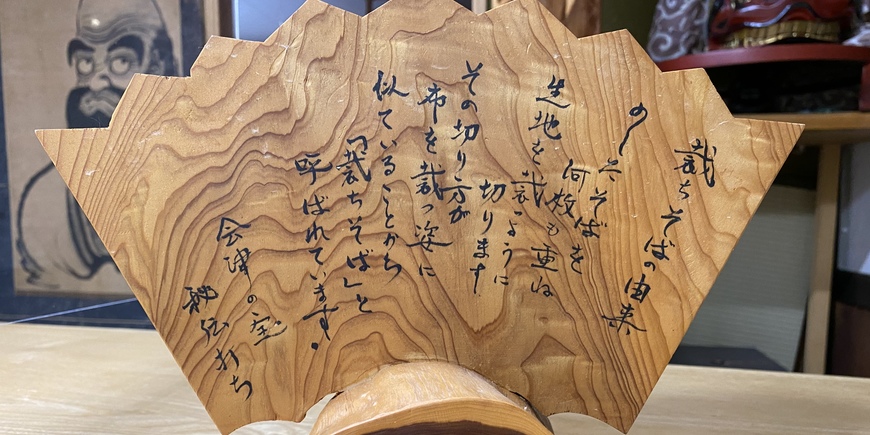 裁ちそばの由来
のしたそばを
何枚も重ね
生地を裁つように
切ります
その切り方が
布を裁つ姿に
似ていることから
「裁ちそば」と
呼ばれています。
会津の宝
秘伝打ち